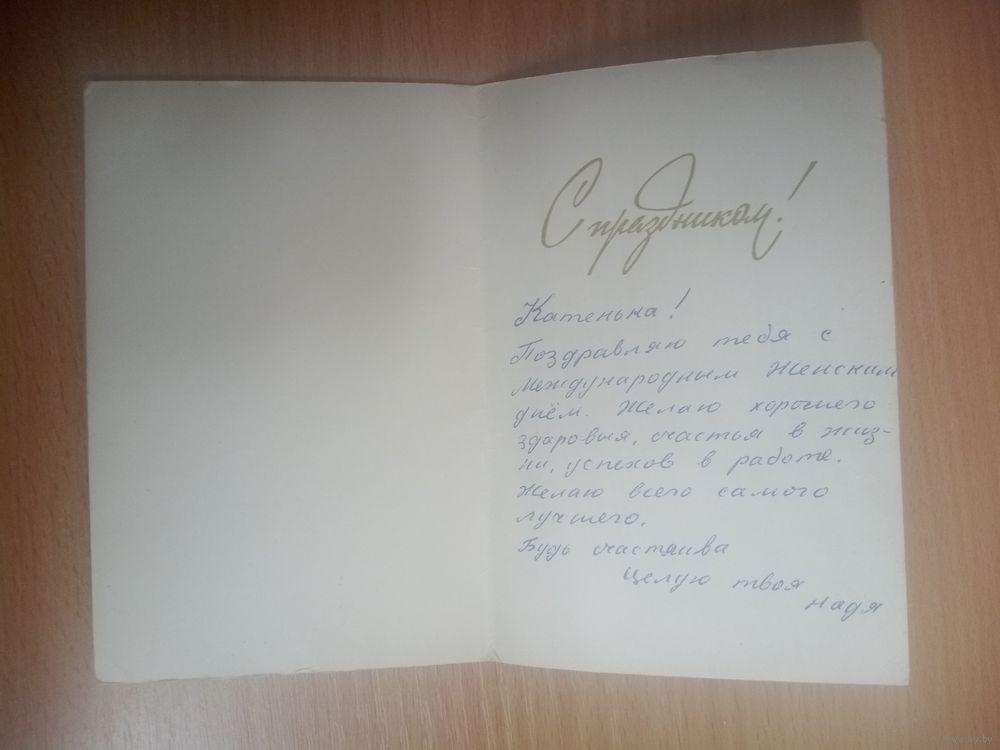 С праздником!
Катенька!
Поздравляю тебя с
международным Женским
днём. Желаю хорошего
здоровья, счастья в жиз-
ни, успехов в работе.
Желаю всего самого
лучшего.
Будь счастлива
Целую твоя
Надя